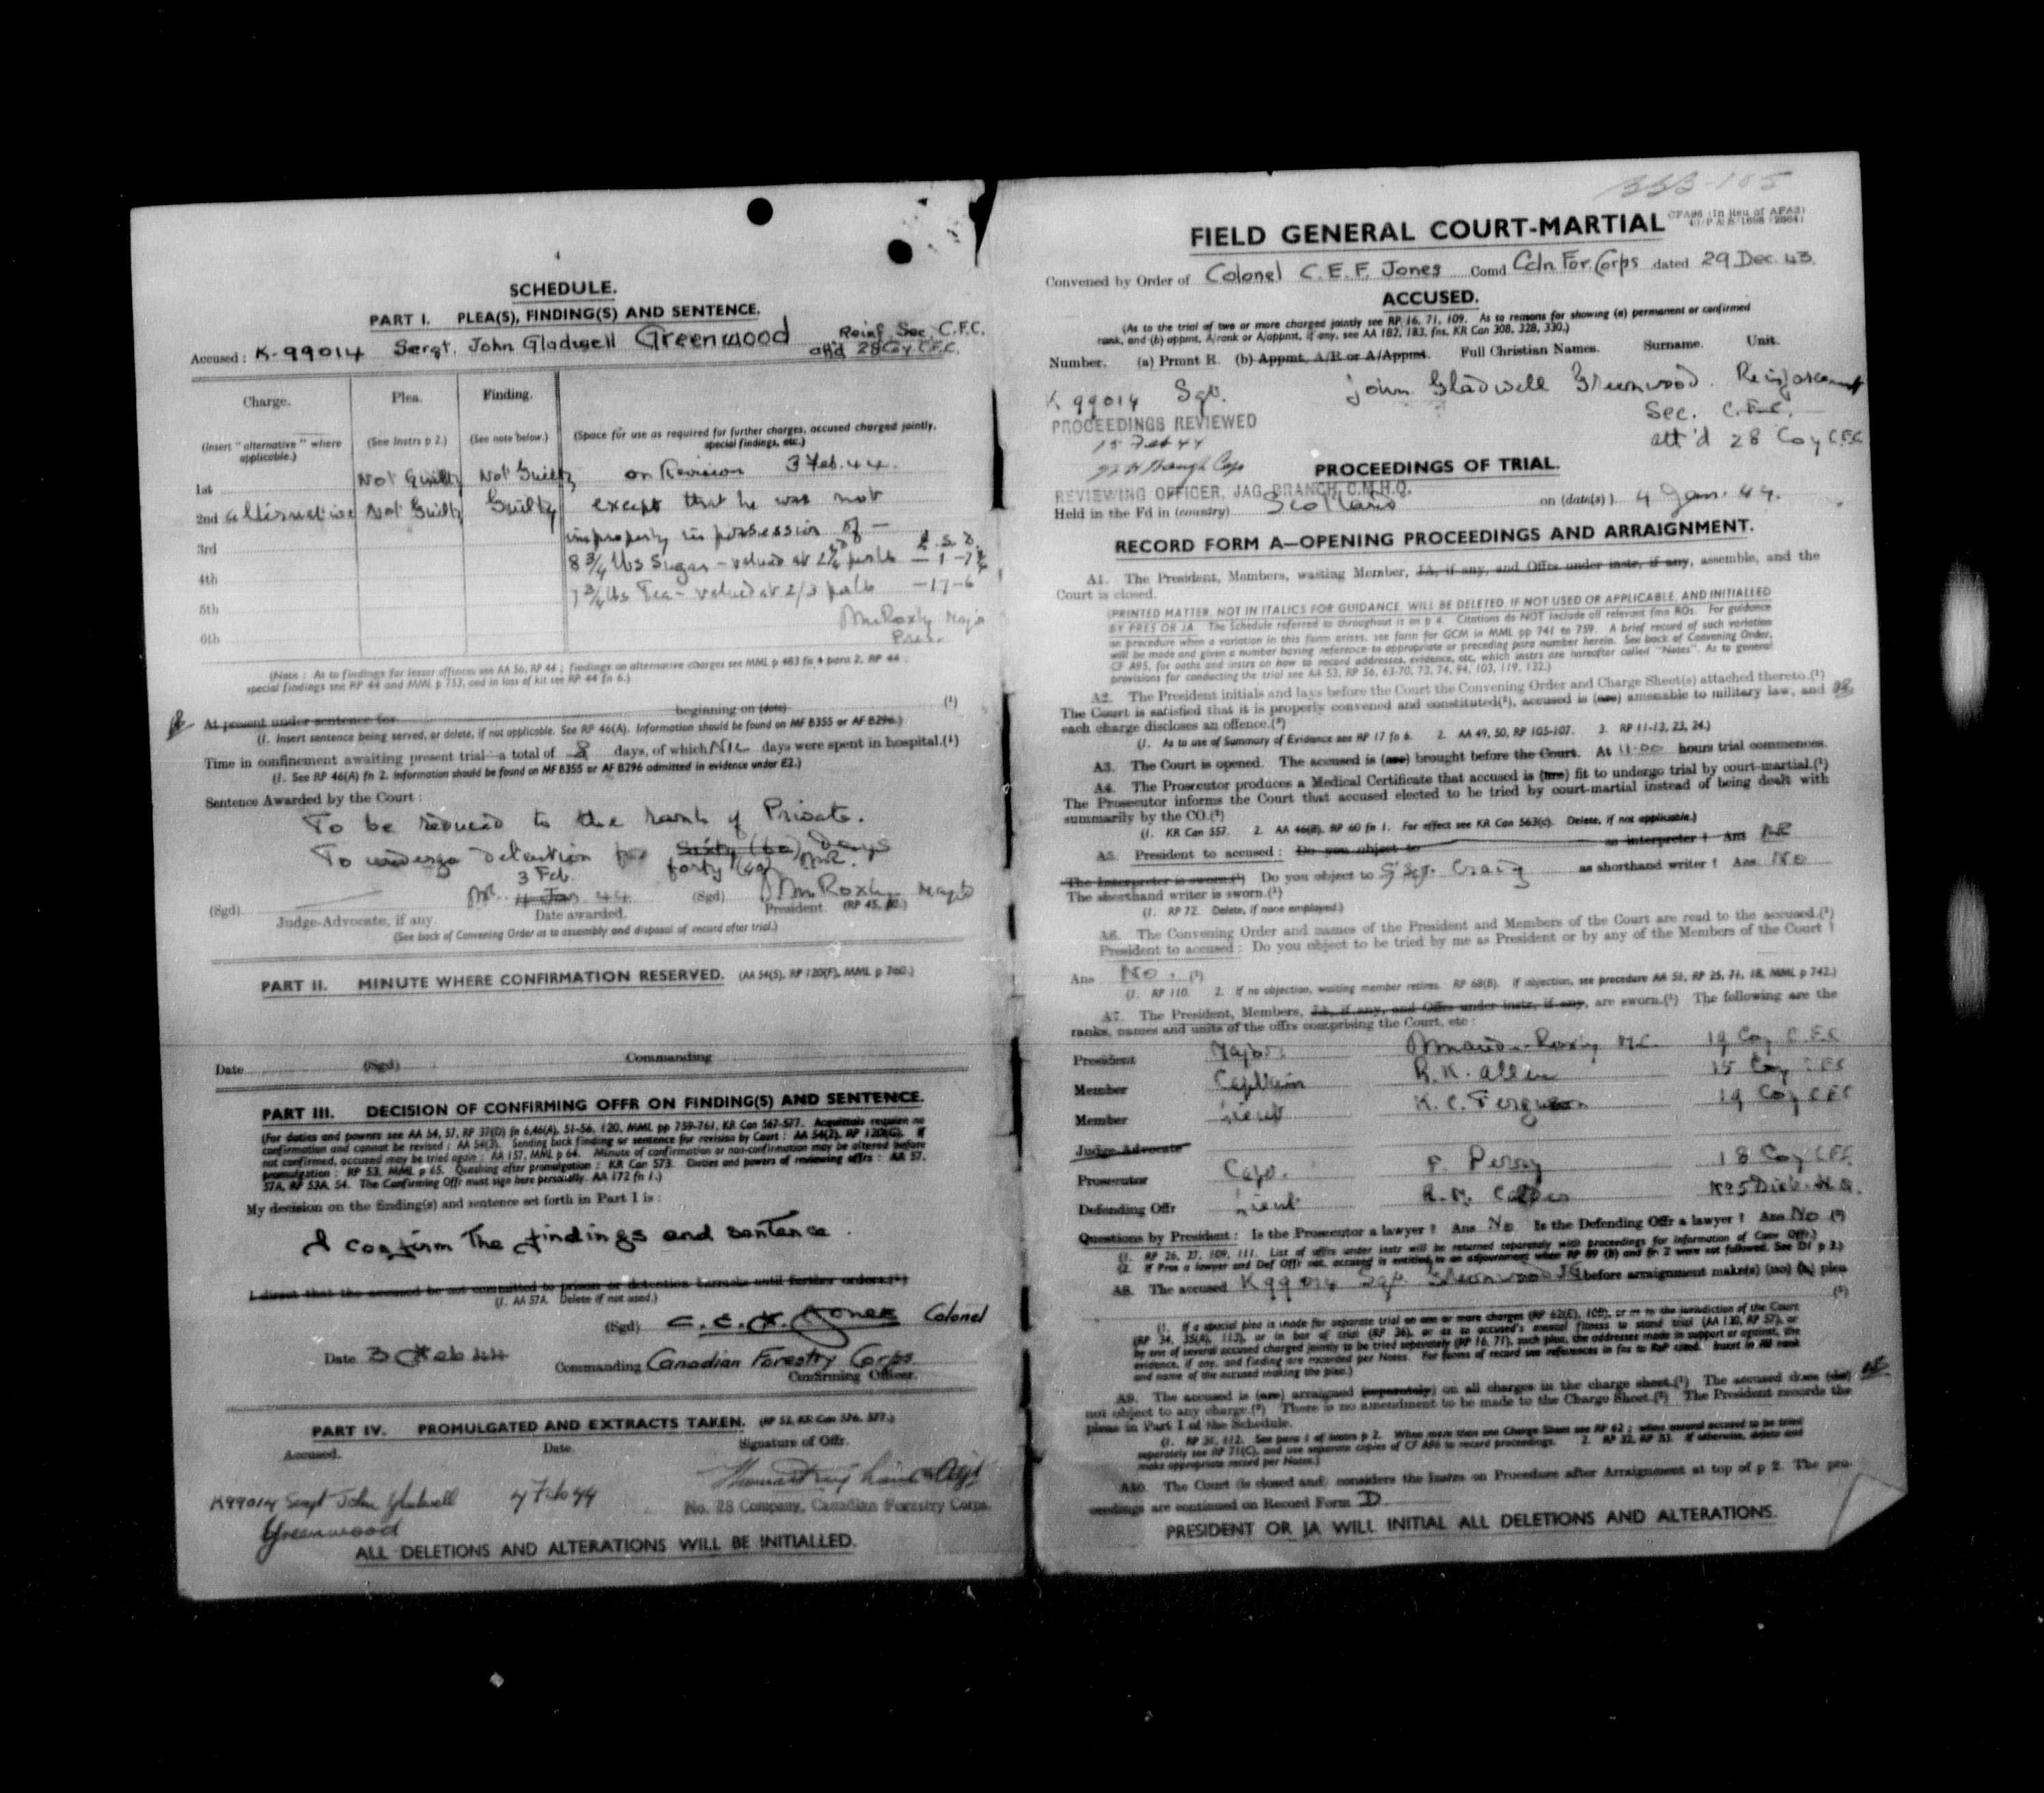 SCHEDULE.
PART I. PLEA(S), FINDING(S) AND SENTENCE.
Accused: K-99014 Sergt. John Gladwell Greenwood Reinf. Sec. C.F.C.
att'd 28 Coy C.F.C.
Charge. Plea. Finding.
(Insert "alternative" where applicable.) (See Instrs p 2.) (See note below.) (Space for use as required for further charges, accused charged jointly, special findings, etc.)
1st Not Guilty Not Guilty on Revision 3 Feb. 44.
2nd alternative Not Guilty Guilty except that he was not
3rd improperly in possession of —
4th 8 3/4 lbs Sugar - valued at per lb
5th 7 3/4 lbs Tea - valued at 2/3 per lb - 17 - 6
6th Major
Pres.
(Note: As to findings for lesser offences see AA 56, RP 44; findings on alternative charges see MML p 483 fn 4 para 2, RP 44;
special findings see RP 44 and MML p 753, and in loss of kit see RP 44 fn 6.)
At present under sentence for beginning on (date) (1)
(1. Insert sentence being served, or delete, if not applicable. See RP 46(A). Information should be found on MF B355 or AF B296.)
Time in confinement awaiting present trial—a total of 8 days, of which NIL days were spent in hospital.(1)
(1. See RP 46(A) fn 2. Information should be found on MF B355 or AF B296 admitted in evidence under E2.)
Sentence Awarded by the Court:
To be reduced to the rank of Private.
To undergo detention for Sixty (60) Days
forty (40)
3 Feb.
(Sgd) 4 Jan 44 (Sgd) Major
Judge-Advocate, if any. Date awarded. President. (RP 45,
(See back of Convening Order as to assembly and disposal of record after trial.)
PART II. MINUTE WHERE CONFIRMATION RESERVED. (AA 54(5), RP 120(F), MML p 760.)
Date (Sgd) Commanding
PART III. DECISION OF CONFIRMING OFFR ON FINDING(S) AND SENTENCE.
(For duties and powers see AA 54, 57, RP 37(D) fn 6,46(A), 51-56, 120, MML pp 759-761, KR Can 567-577. Acquittals require no
confirmation and cannot be revised: AA 54(3). Sending back finding or sentence for revision by Court: AA 54(2), RP 120(G). If
not confirmed, accused may be tried again: AA 157, MML p 64. Minute of confirmation or non-confirmation may be altered before
promulgation: RP 53, MML p 65. Quashing after promulgation: KR Can 573. Duties and powers of reviewing offrs: AA 57,
57A, RP 53A, 54. The Confirming Offr must sign here personally. AA 172 fn 1.)
My decision on the finding(s) and sentence set forth in Part I is:
I confirm the findings and sentence.
I direct that the accused be not committed to prison or detention barracks until further orders.(1)
(1. AA 57A. Delete if not used.)
(Sgd) C. E. F. Jones Colonel
Date 3 Feb 44 Commanding Canadian Forestry Corps
Confirming Officer.
PART IV. PROMULGATED AND EXTRACTS TAKEN. (RP 53, KR Can 576, 577.)
Accused. Date. Signature of Offr.
K99014 Sergt John Gladwell 4 Feb 44
Greenwood No. 28 Company, Canadian Forestry Corps.
ALL DELETIONS AND ALTERATIONS WILL BE INITIALLED.
FIELD GENERAL COURT-MARTIAL CFA96 (In lieu of AFA3)
Convened by Order of Colonel C.E.F. Jones Comd Cdn For. Corps dated 29 Dec. 43.
ACCUSED.
(As to the trial of two or more charged jointly see RP 16, 71, 109. As to reasons for showing (a) permanent or confirmed
rank, and (b) appmt, A/rank or A/appmt, if any, see AA 182, 183, fns, KR Can 308, 328, 330.)
Number. (a) Prmnt R. (b) Appmt, A/R or A/Appmt. Full Christian Names. Surname. Unit.
K 99014 Sgt. John Gladwell Greenwood. Reinforcement
Sec. C.F.C.
att'd 28 Coy C.F.C
PROCEEDINGS REVIEWED
15 Feb 44
REVIEWING OFFICER, JAG BRANCH, C.M.H.Q.
PROCEEDINGS OF TRIAL.
Held in the Fd in (country) Scotland on (date(s)) 4 Jan. 44.
RECORD FORM A—OPENING PROCEEDINGS AND ARRAIGNMENT.
A1. The President, Members, waiting Member, JA, if any, and Offrs under instr, if any, assemble, and the
Court is closed.
(PRINTED MATTER, NOT IN ITALICS FOR GUIDANCE, WILL BE DELETED, IF NOT USED OR APPLICABLE, AND INITIALLED
BY PRES OR JA. The Schedule referred to throughout is on p 4. Citations do NOT include all relevant fns or ROs. For guidance
on procedure when a variation in this form arises, see form for GCM in MML pp 741 to 759. A brief record of such variation
will be made and given a number having reference to appropriate or preceding para number herein. See back of Convening Order,
CF A95, for oaths and instrs on how to record addresses, evidence, etc, which instrs are hereafter called "Notes". As to general
provisions for conducting the trial see AA 53, RP 56, 63-70, 73, 74, 94, 103, 119, 122.)
A2. The President initials and lays before the Court the Convening Order and Charge Sheet(s) attached thereto.(1)
The Court is satisfied that it is properly convened and constituted(2), accused is (are) amenable to military law, and
each charge discloses an offence.(3)
(1. As to use of Summary of Evidence see RP 17 fn 6. 2. AA 49, 50, RP 105-107. 3. RP 11-13, 23, 24.)
A3. The Court is opened. The accused is (are) brought before the Court. At 11.00 hours trial commences.
A4. The Prosecutor produces a Medical Certificate that accused is (are) fit to undergo trial by court-martial.(1)
The Prosecutor informs the Court that accused elected to be tried by court-martial instead of being dealt with
summarily by the CO.(2)
(1. KR Can 557. 2. AA 46(8), RP 60 fn 1. For effect see KR Can 563(c). Delete, if not applicable.)
A5. President to accused: Do you object to as interpreter? Ans
The Interpreter is sworn.(1) Do you object to S/Sgt. Craig as shorthand writer? Ans No
The shorthand writer is sworn.(1)
(1. RP 72. Delete, if none employed.)
A6. The Convening Order and names of the President and Members of the Court are read to the accused.(1)
President to accused: Do you object to be tried by me as President or by any of the Members of the Court?
Ans No. (2)
(1. RP 110. 2. If no objection, waiting member retires. RP 68(B). If objection, see procedure AA 51, RP 25, 71, 18, MML p 742.)
A7. The President, Members, JA, if any, and Offrs under instr, if any, are sworn.(1) The following are the
ranks, names and units of the offrs comprising the Court, etc:
President Major M.C. 19 Coy C.F.C
Member Captain R.K. Allen 15 Coy CFC
Member Lieut K.C. Ferguson 19 Coy CFC
Judge-Advocate
Prosecutor Capt. F. Perry 18 Coy CFC
Defending Offr Lieut No 5 Dist. H.Q.
Questions by President: Is the Prosecutor a lawyer? Ans No Is the Defending Offr a lawyer? Ans No (2)
(1. RP 26, 27, 109, 111. List of offrs under instr will be returned separately with proceedings for information of Conv Offr.)
(2. If Pros a lawyer and Def Offr not, accused is entitled to an adjournment when RP 89 (B) and fn 2 were not followed. See D1 p 3.)
A8. The accused K99014 Sgt. Greenwood JG before arraignment make(s) (no) (a) plea
(1)
(1. If a special plea is made for separate trial on one or more charges (RP 62(E), 108), or as to the jurisdiction of the Court
(RP 34, 35(A), 113), or in bar of trial (RP 36), or as to accused's mental fitness to stand trial (AA 130, RP 57), or
by one of several accused charged jointly to be tried separately (RP 16, 71), such plea, the addresses made in support or against, the
evidence, if any, and finding are recorded per Notes. For forms of record see references in fns to RsP cited. Insert in A8 rank
and name of the accused making the plea.)
A9. The accused is (are) arraigned (separately) on all charges in the charge sheet.(1) The accused does (do)
not object to any charge.(2) There is no amendment to be made to the Charge Sheet.(2) The President records the
pleas in Part I of the Schedule.
(1. RP 31, 112. See para 1 of Instrs p 2. When more than one Charge Sheet see RP 62; when several accused to be tried
separately see RP 71(C), and use separate copies of CF A96 to record proceedings. 2. RP 32, RP 83. If otherwise, delete and
make appropriate record per Notes.)
A10. The Court (is closed and) considers the Instrs on Procedure after Arraignment at top of p 2. The pro-
ceedings are continued on Record Form D.
PRESIDENT OR JA WILL INITIAL ALL DELETIONS AND ALTERATIONS.